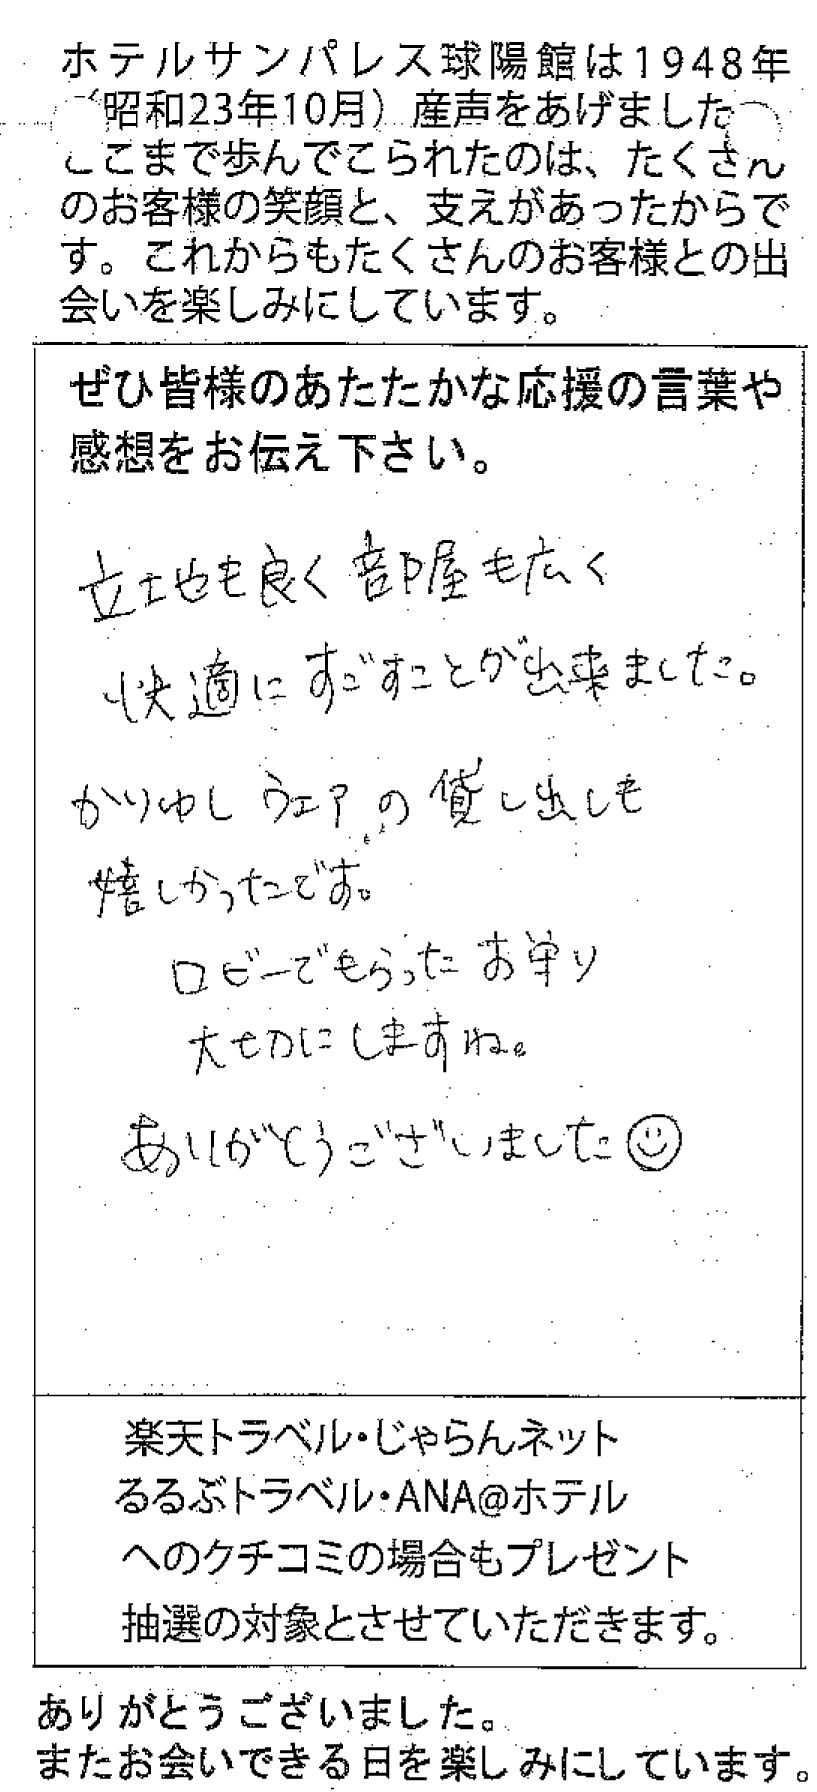 ホテルサンパレス球陽館は1948年
（昭和23年10月）産声をあげました
ここまで歩んでこられたのは、たくさん
のお客様の笑顔と、支えがあったからで
す。これからもたくさんのお客様との出
会いを楽しみにしています。
ぜひ皆様のあたたかな応援の言葉や
感想をお伝え下さい。
立地も良く部屋も広く
快適にすごすことが出来ました。
かりゆしウェアの貸し出しも
嬉しかったです。
ロビーでもらったお守り
大切にしますね。
ありがとうございました☺
楽天トラベル・じゃらんネット
るるぶトラベル・ANA@ホテル
へのクチコミの場合もプレゼント
抽選の対象とさせていただきます。
ありがとうございました。
またお会いできる日を楽しみにしています。